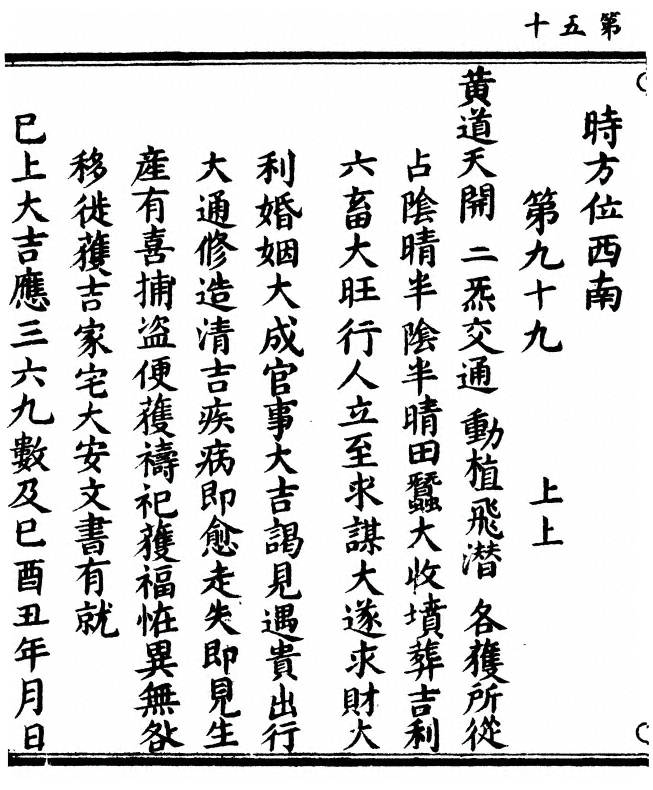 第五十
時方位西南
第九十九 上上
黃道天開 二炁交通 動植飛潛 各獲所從
占陰晴半陰半晴田蠶大收墳葬吉利
六畜大旺行人立至求謀大遂求財大
利婚姻大成官事大吉謁見遇貴出行
大通修造清吉疾病即愈走失即見生
產有喜捕盜便獲禱祀獲福怪異無咎
移徙獲吉家宅大安文書有就
已上大吉應三六九數及巳酉丑年月日